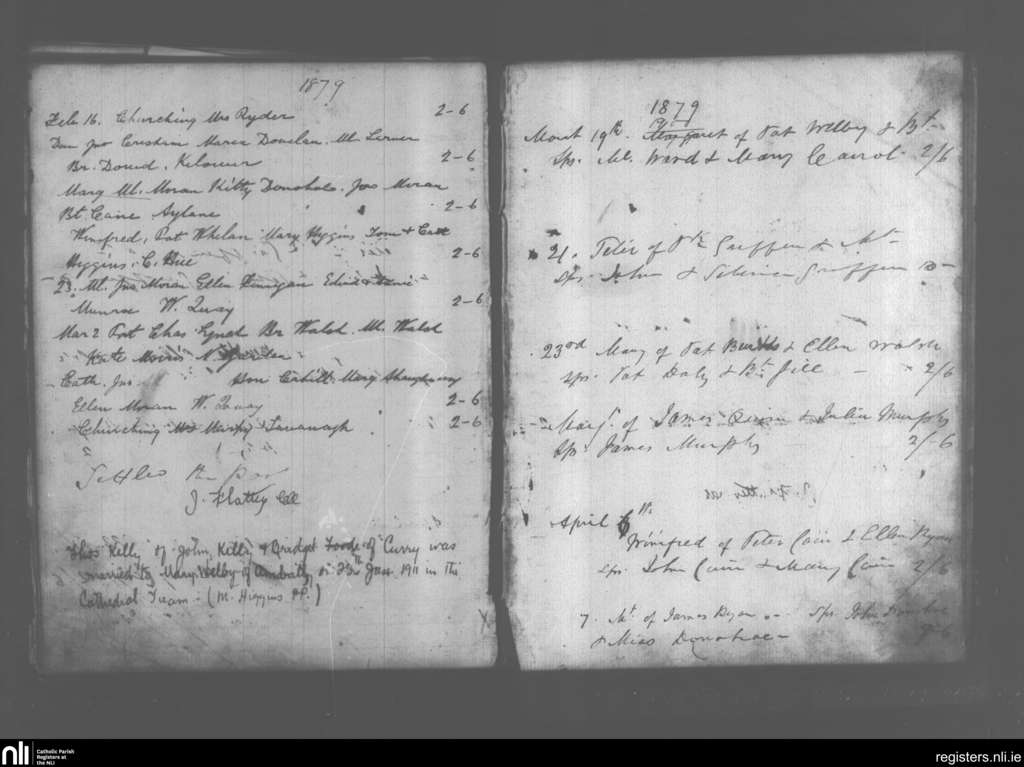 1879
Feb 16. Churching Mrs Ryder 2-6
Dan Jno Maria Donelan. Ml.
Br. Kilower 2-6
Mary Ml. Moran Kitty Donohoe. Jas Moran
Bt. Cane Aylane 2-6
Winefred, Pat Whelan Mary Higgins Tom & Cath
Higgins. C. Hill 2-6
23. Ml. Jno Moran Ellen Finnigan
Munroe W. Quay 2-6
Mar 2 Pat Chas Lynch Br Walsh. Ml. Walsh
Kate Morris N. Garden
Cath. Jno Hon Cahill. Mary Shaughnessy
Ellen Moran W. Quay 2-6
Churching Mrs Kavanagh 2-6
Settled
J. Flattery CC
Thos Kelly of John Kelly & Bridget Toole of Curry was
married to Mary Welby of on 23rd Jan. 1911 in the
Cathedral Tuam - (M. Higgins PP.)
1879
March 19th. of Pat Welby & Bt.
Sps. Ml. Ward & Mary 2/6
21. Peter of Pk Griffin & Mt
sps. John & Griffin
23rd Mary of Pat Burke & Ellen Walsh
sps. Pat Daly & Bt. Gill - 2/6
Marg. of James Quinn & Julia Murphy
Sps. James Murphy 2/-6
April 6th.
Winifred of Peter Cain & Ellen Ryan
sps. John Cain & Mary Cain 2/6
7. Mt. of James Ryan Sps. John
& Miss Donohoe -
nli
Catholic Parish
Registers at
the NLI
registers.nli.ie